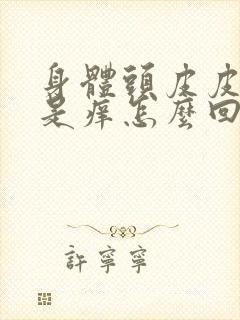 身體頭皮皮
是痒怎麼回
許寧寧